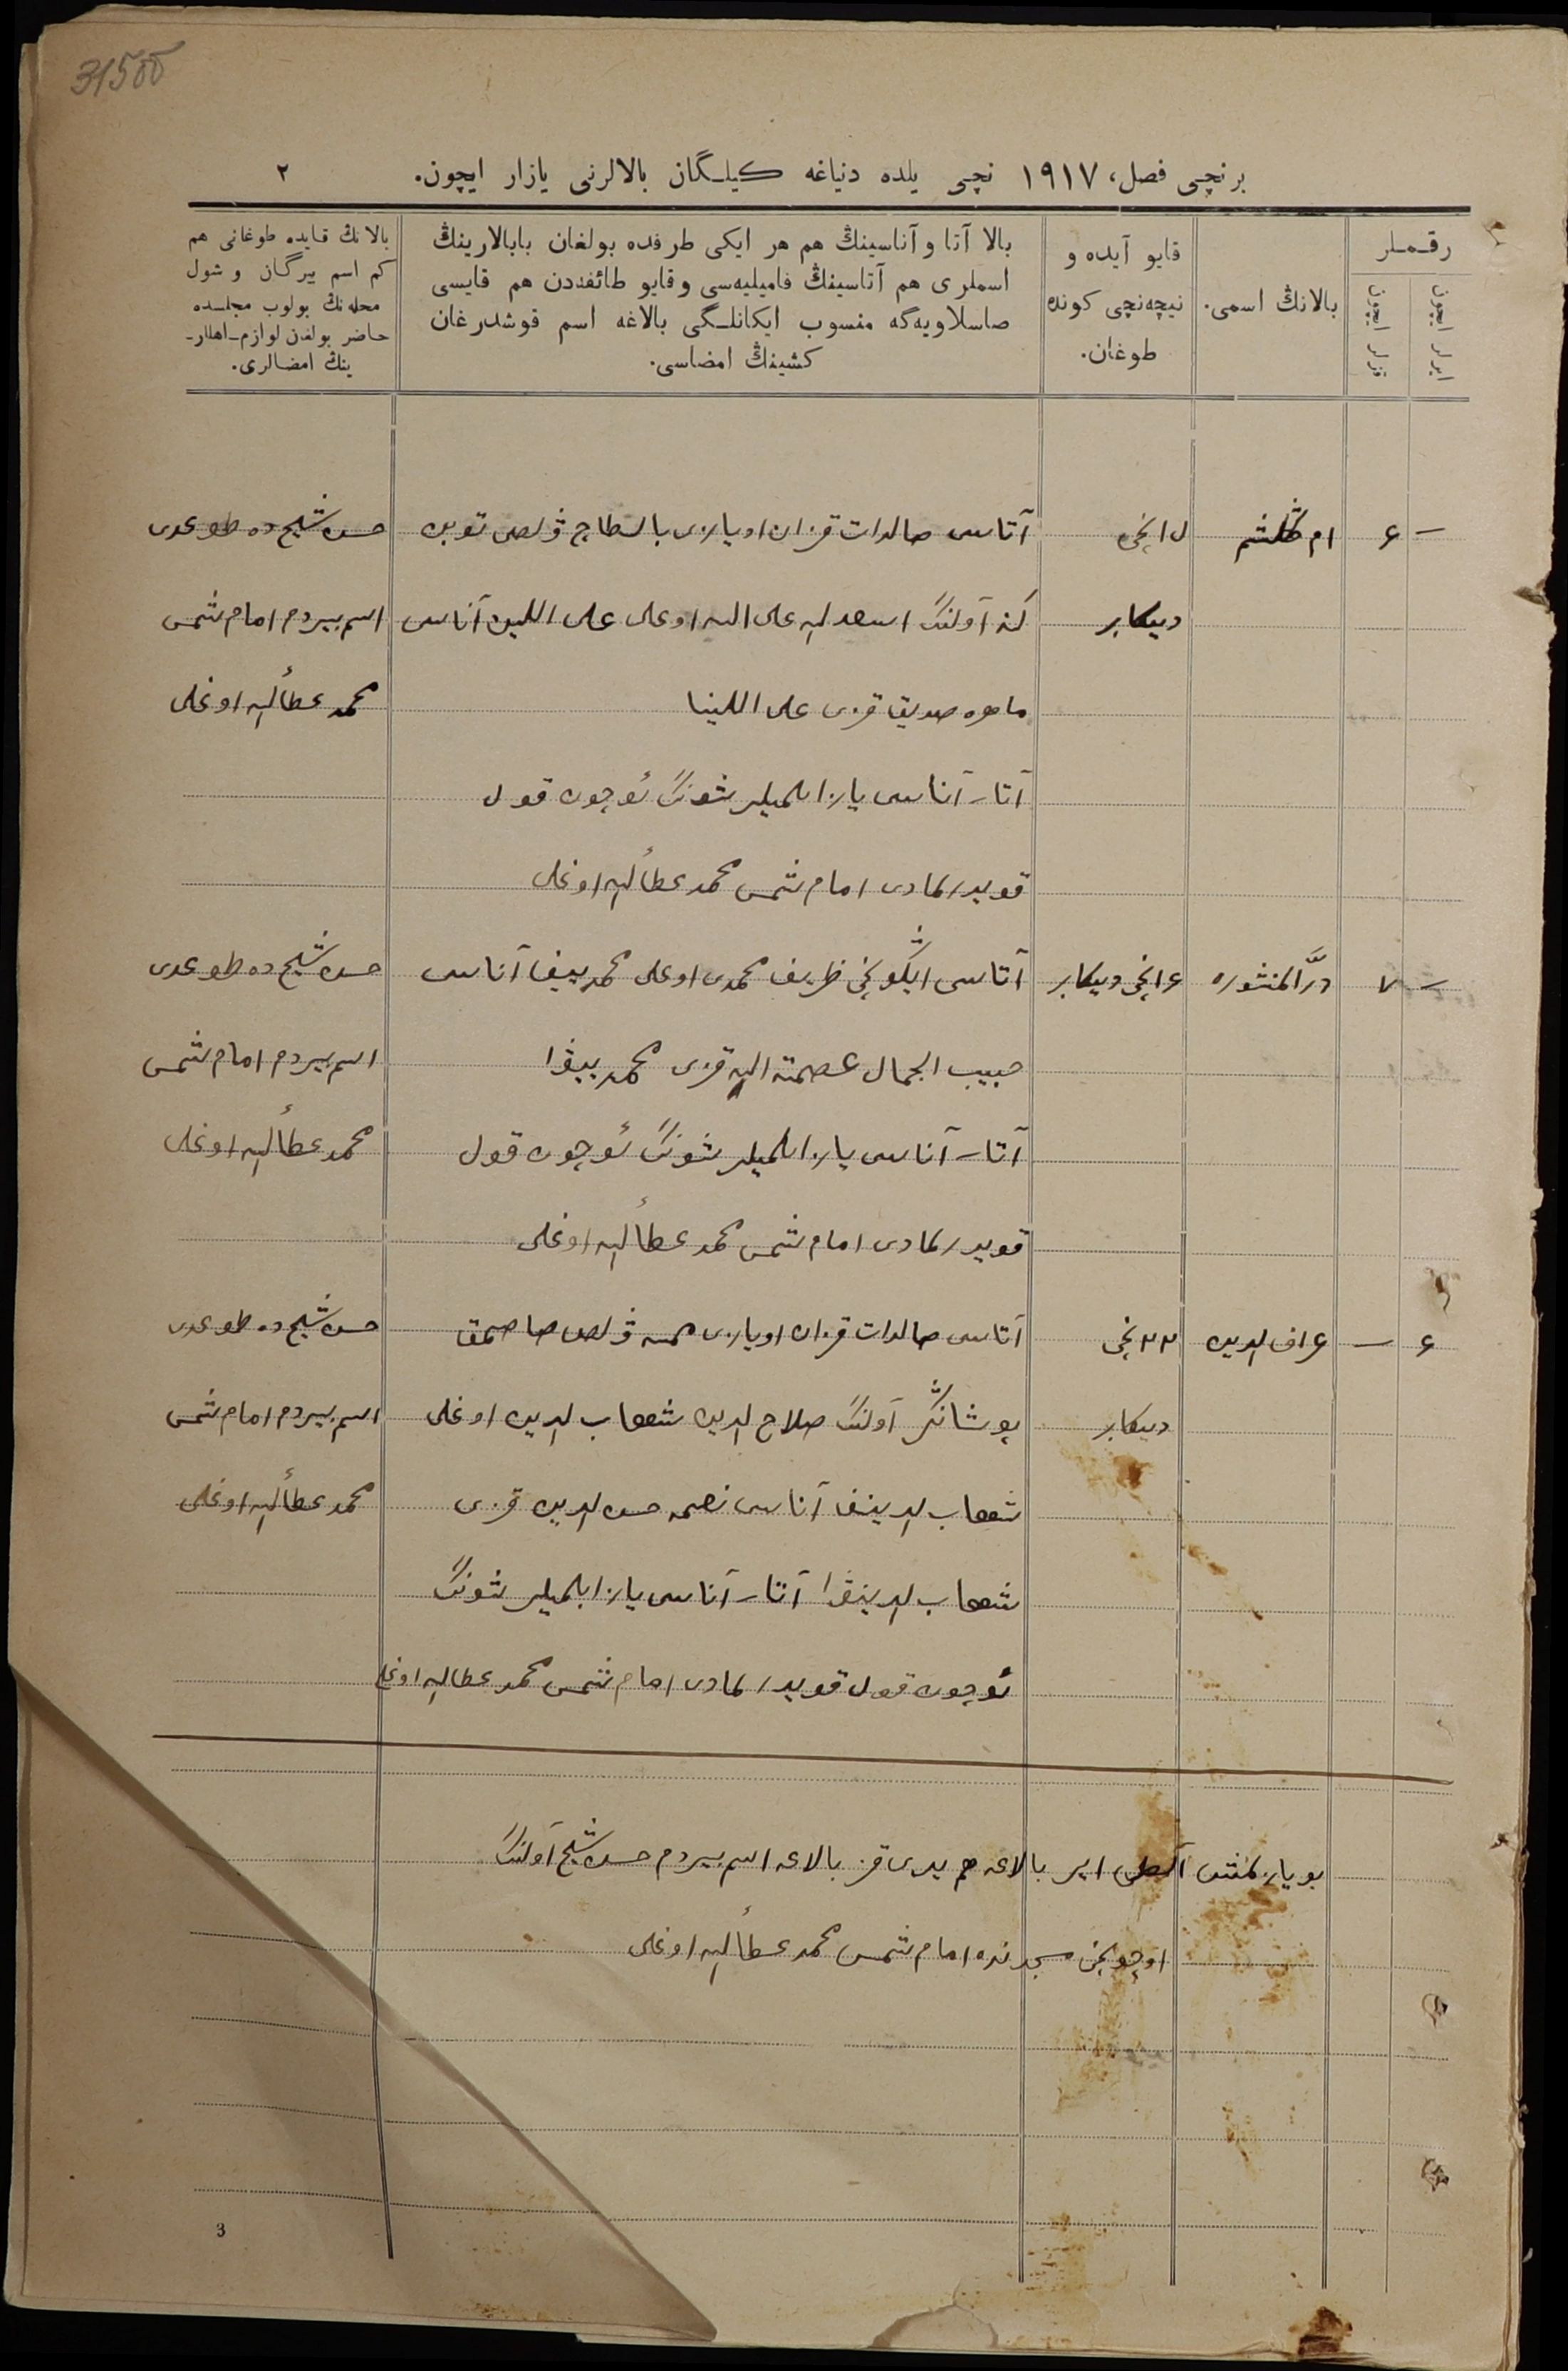 315об
برنچی فصل، ۱۹۱۷ نچی یلده دنیاغه کیلـگان بالالرنی یازار ایچون. ۲
رقـمـلر
ایرلر ایچون
قزلر ایچون
بالانڭ اسمی.
قایو آیده و
نیچه‌نچی کونده
طوغان.
بالا آتا و آناسینڭ هم هر ایکی طرفده بولغان بابالارینڭ
اسملری هم آتاسینڭ فامیلیه‌سی و قایو طائفه‌دن هم قایسی
صاسلاویه‌گه منسوب ایکانلـگی بالاغه اسم قوشدرغان
کشینڭ امضاسی.
بالانڭ قایده طوغانی هم
کم اسم بیرگان و شول
محله‌نڭ بولوب مجلسده
حاضر بولغان لوازم-اهللر-
ینڭ امضالری.
— ۶ ام کلثم
دیکابر
آتاسی صالدات قزان اویازی
اسعدالله علی الله اوغلی علی اللین آناسی
ماهره صدیق قزی علی اللینا
آتا – آناسی یازا بلمیلر شونڭ ئوچون قول
قویدر لمادی امام شمس محمد عطأ الله اوغلی
حسن شیخ ده طوغدی
اسم بیردم امام شمس
محمد عطأ الله اوغلی
— ۷ درّ المنثوره
دیکابر
آتاسی ظریف محمدی اوغلی محمدییف آناسی
حبیب الجمال عصمة الله قزی محمدییفا
آتا – آناسی یازا بلمیلر شونڭ ئوچون قول
قویدر لمادی امام شمس محمد عطأ الله اوغلی
حسن شیخ ده طوغدی
اسم بیردم امام شمس
محمد عطأ الله اوغلی
۶ —
۲۲ نچی
دیکابر
آتاسی صالدات قزان اویازی
آولنڭ صلاح الدین شهاب الدین اوغلی
شهاب الدینف آناسی حسن الدین قزی
شهاب الدینڤا آتا – آناسی یازا بلمیلر شونڭ
ئوچون قول قویدر لمادی امام شمس محمد عطا الله اوغلی
حسن شیخ ده طوغدی
اسم بیردم امام شمس
محمد عطأ الله اوغلی
بو یازلمش آلطی ایر بالاغه هم یدی قز بالاغه اسم بیردم حسن شیخ آولنڭ
اوچونچی مسجدنده امام شمس محمد عطأ الله اوغلی
3